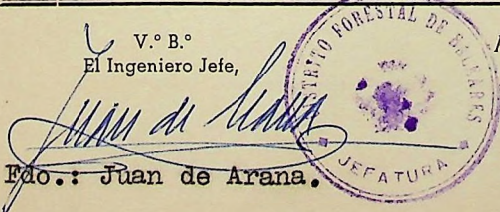 V.° B.°
El Ingeniero Jefe,
Juan de Arana
Fdo.: Juan de Arana.
DISTRITO FORESTAL DE BALEARES
JEFATURA